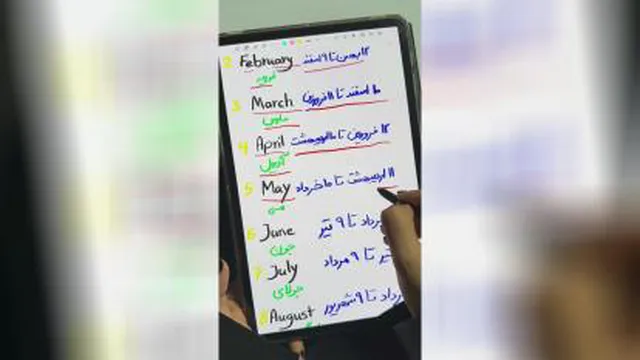 2 February ۱۲ بهمن تا ۹ اسفند
فوریه
3 March ۱۰ اسفند تا ۱۱ فروردین
مارس
4 April ۱۲ فروردین تا ۱۰ اردیبهشت
آوریل
5 May ۱۱ اردیبهشت تا ۱۰ خرداد
می
6 June رداد تا ۹ تیر
جون
7 July تیر تا ۹ مرداد
جولای
8 August رداد تا ۹ شهریور